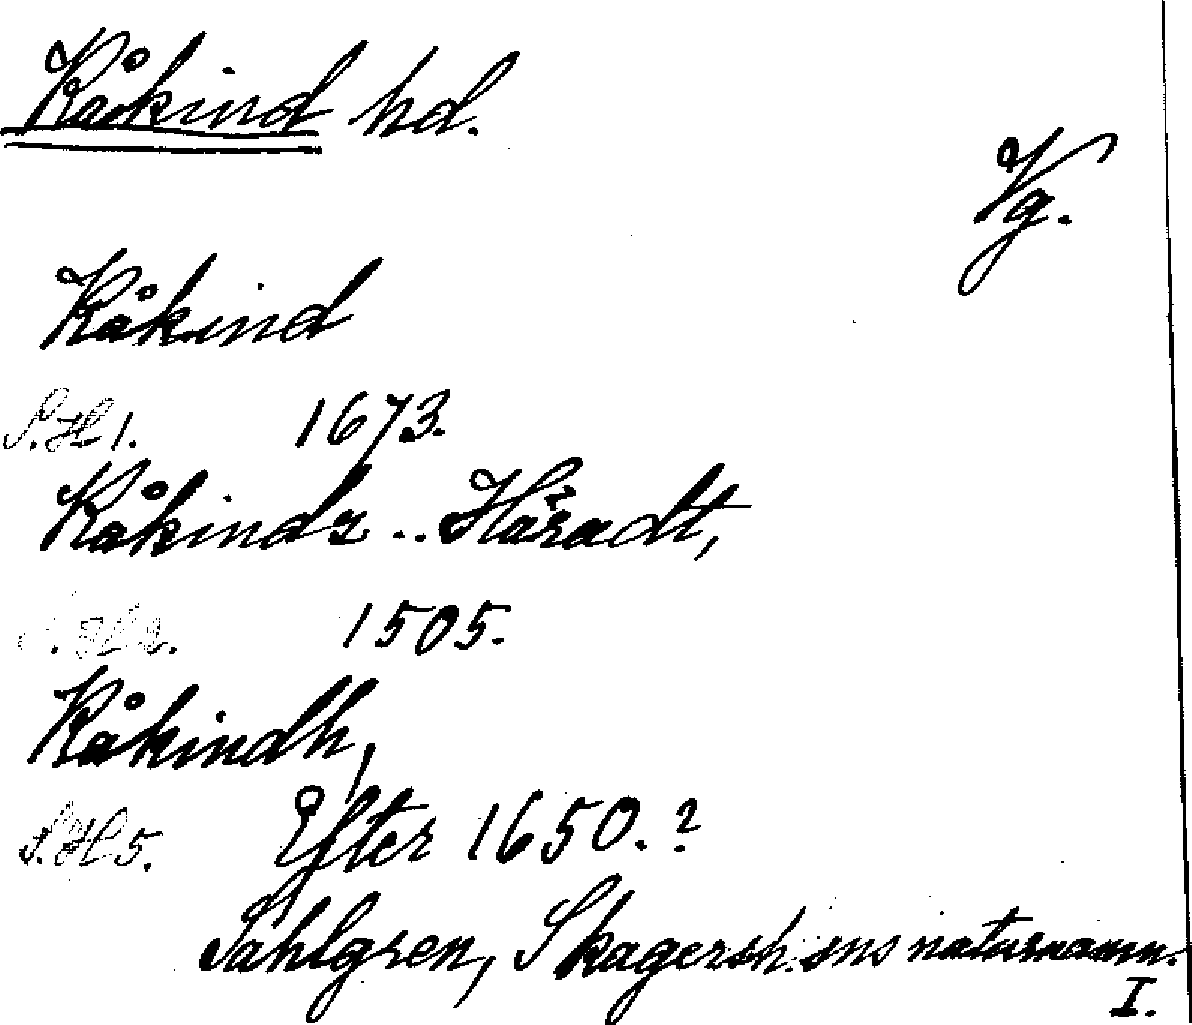 Kåkind hd.
Vg.
Kåkind
S.H 1. 1673.
Kåkindz .. Häradt,
S.H 2. 1505.
Kåkindh,
S.H 5. Efter 1650.?
Sahlgren, Skagersh:sns naturnamn.
I.